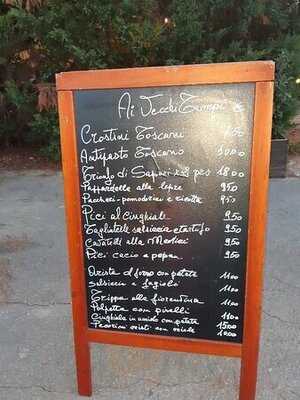 Ai Vecchi Tempi
Crostini Toscani 7.50
Antipasto Toscano 10.00
Trionfo di Sapori x2 pes 18.00
Pappardelle alla lepre 9.50
Paccheri-pomodorini e ricotta 9.50
Pici al cinghiale 9.50
Tagliatelle salsiccia e tartufo 9.50
Cavatelli alla Medici 9.50
Pici cacio e pepe 9.50
Arista al forno con patate 11.00
Salsiccia e fagioli 11.00
Trippa alla fiorentina 11.00
Polpette con piselli
Cinghiale in umido con patate 15.00
Pecorini misti con miele 12.00